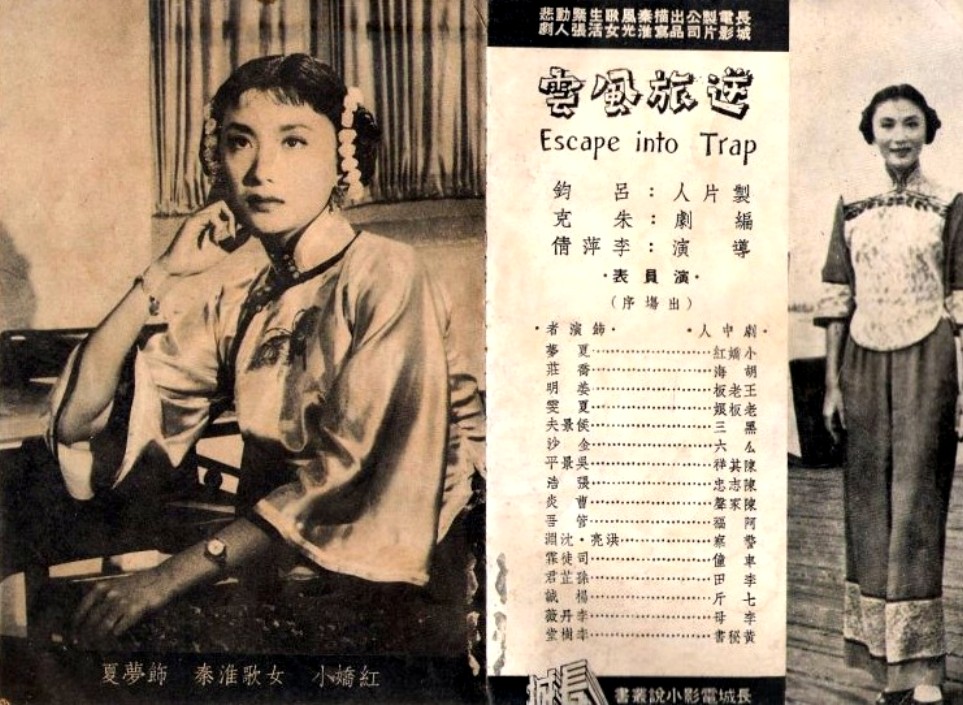 長城電影製片公司出品描寫秦淮風光歌女生活緊張動人悲劇
逆旅風雲
Escape into Trap
製片人：呂鈞
編劇：朱克
導演：李萍倩
·演員表·
（出場序）
·劇中人· ·飾演者·
小嬌紅……夏夢
胡海……喬莊
王老板……姜明
老板娘……夏雯
黑三……侯景夫
么六……金沙
陳其祥……吳景平
陳志忠……張浩
陳家聲……曹炎
阿福……管吾
警察……洪亮·沈淵
車僮……司徒霖
李田……孫芷君
七斤……楊誠
李母……李丹薇
黃秘書……李樹堂
夏夢飾 秦淮歌女 小嬌紅
長城
長城電影小說叢書